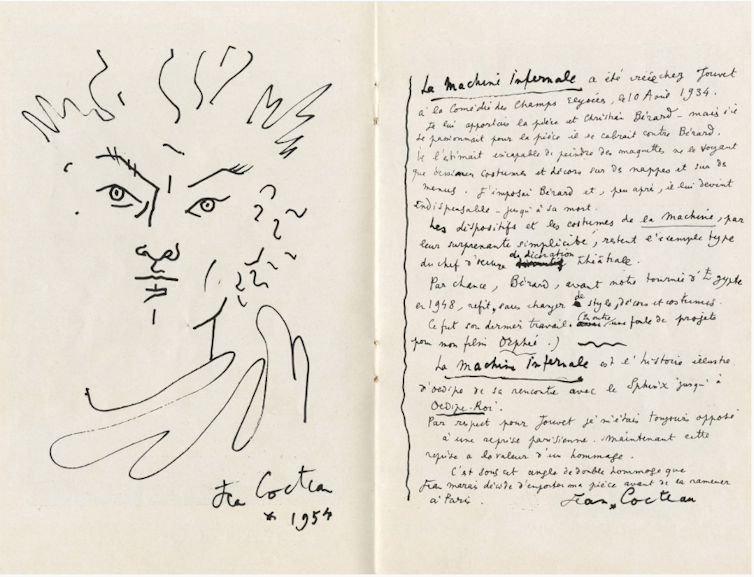 Jean Cocteau
* 1954
La Machine Infernale a été créée chez Jouvet
à la Comédie des Champs Elysées, le 10 Avril 1934.
Je lui apportais la pièce et Christian Bérard – mais s'il
se passionnait pour la pièce il se cabrait contre Bérard.
Il l'estimait incapable de peindre des maquettes ne le voyant
que dessiner costumes et décors sur des nappes et sur des
menus. J'imposai Bérard et, peu après, il lui devint
indispensable – jusqu'à sa mort.
Les dispositifs et les costumes de la Machine, par
leur surprenante simplicité, restent l'exemple type
du chef d'œuvre de décoration théâtrale.
Par chance, Bérard, avant notre tournée d'Egypte
en 1948, refit, sans changer de style, décors et costumes.
Ce fut son dernier travail. (outre une foule de projets
pour mon film Orphée.)
La Machine Infernale est l'histoire illustre
d'Oedipe de sa rencontre avec le Sphinx jusqu'à
Oedipe-Roi.
Par respect pour Jouvet je m'étais toujours opposé
à une reprise parisienne. Maintenant cette
reprise a la valeur d'un hommage.
C'est sous cet angle de double hommage que
Jean Marais décide d'emporter ma pièce avant de la ramener
à Paris.
Jean Cocteau
*